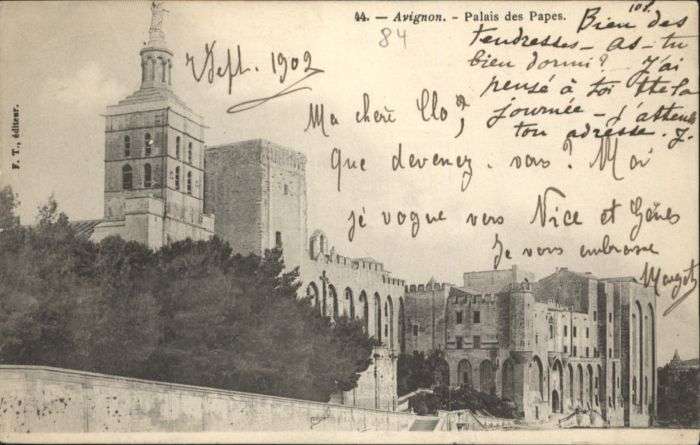 44. — Avignon. - Palais des Papes.
108.
84
F. T., éditeur.
Bien des
tendresses - as-tu
bien dormi? J'ai
pensé à toi tte la
journée - j'attends
ton adresse. J.
7 Sept. 1902
Ma chère Clo,
Que devenez-vous? Moi
je vogue vers Nice et Gênes
Je vous embrasse
Margot